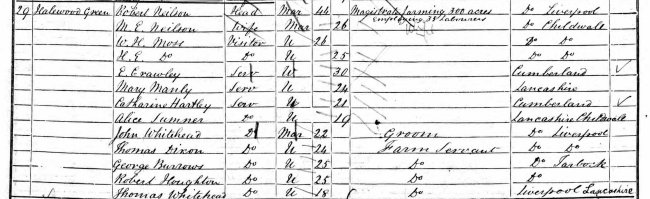 29 Halewood Green Robert Neilson Head Mar 44 Magistrate farming 300 acres Do Liverpool
employing 38 labourers
M. E. Neilson Wife Mar 26 Do Childwall
W. H. Moss Visitor U 26 Do Do
H. E. Do Do U 25 Do Do
E. Crawley Serv U 30 Cumberland
Mary Manly Serv U 24 Lancashire
Catharine Hartley Serv U 21 Cumberland
Alice Sumner Do U 19 Lancashire Childwall
John Whitehead Do Mar 22 Groom Do Liverpool
Thomas Dixon Do U 24 Farm Servant Do Do
George Burrows Do U 25 Do Do Tarbock
Robert Houghton Do U 25 Do Do
Thomas Whitehead Do U 18 Do Liverpool Lancashire